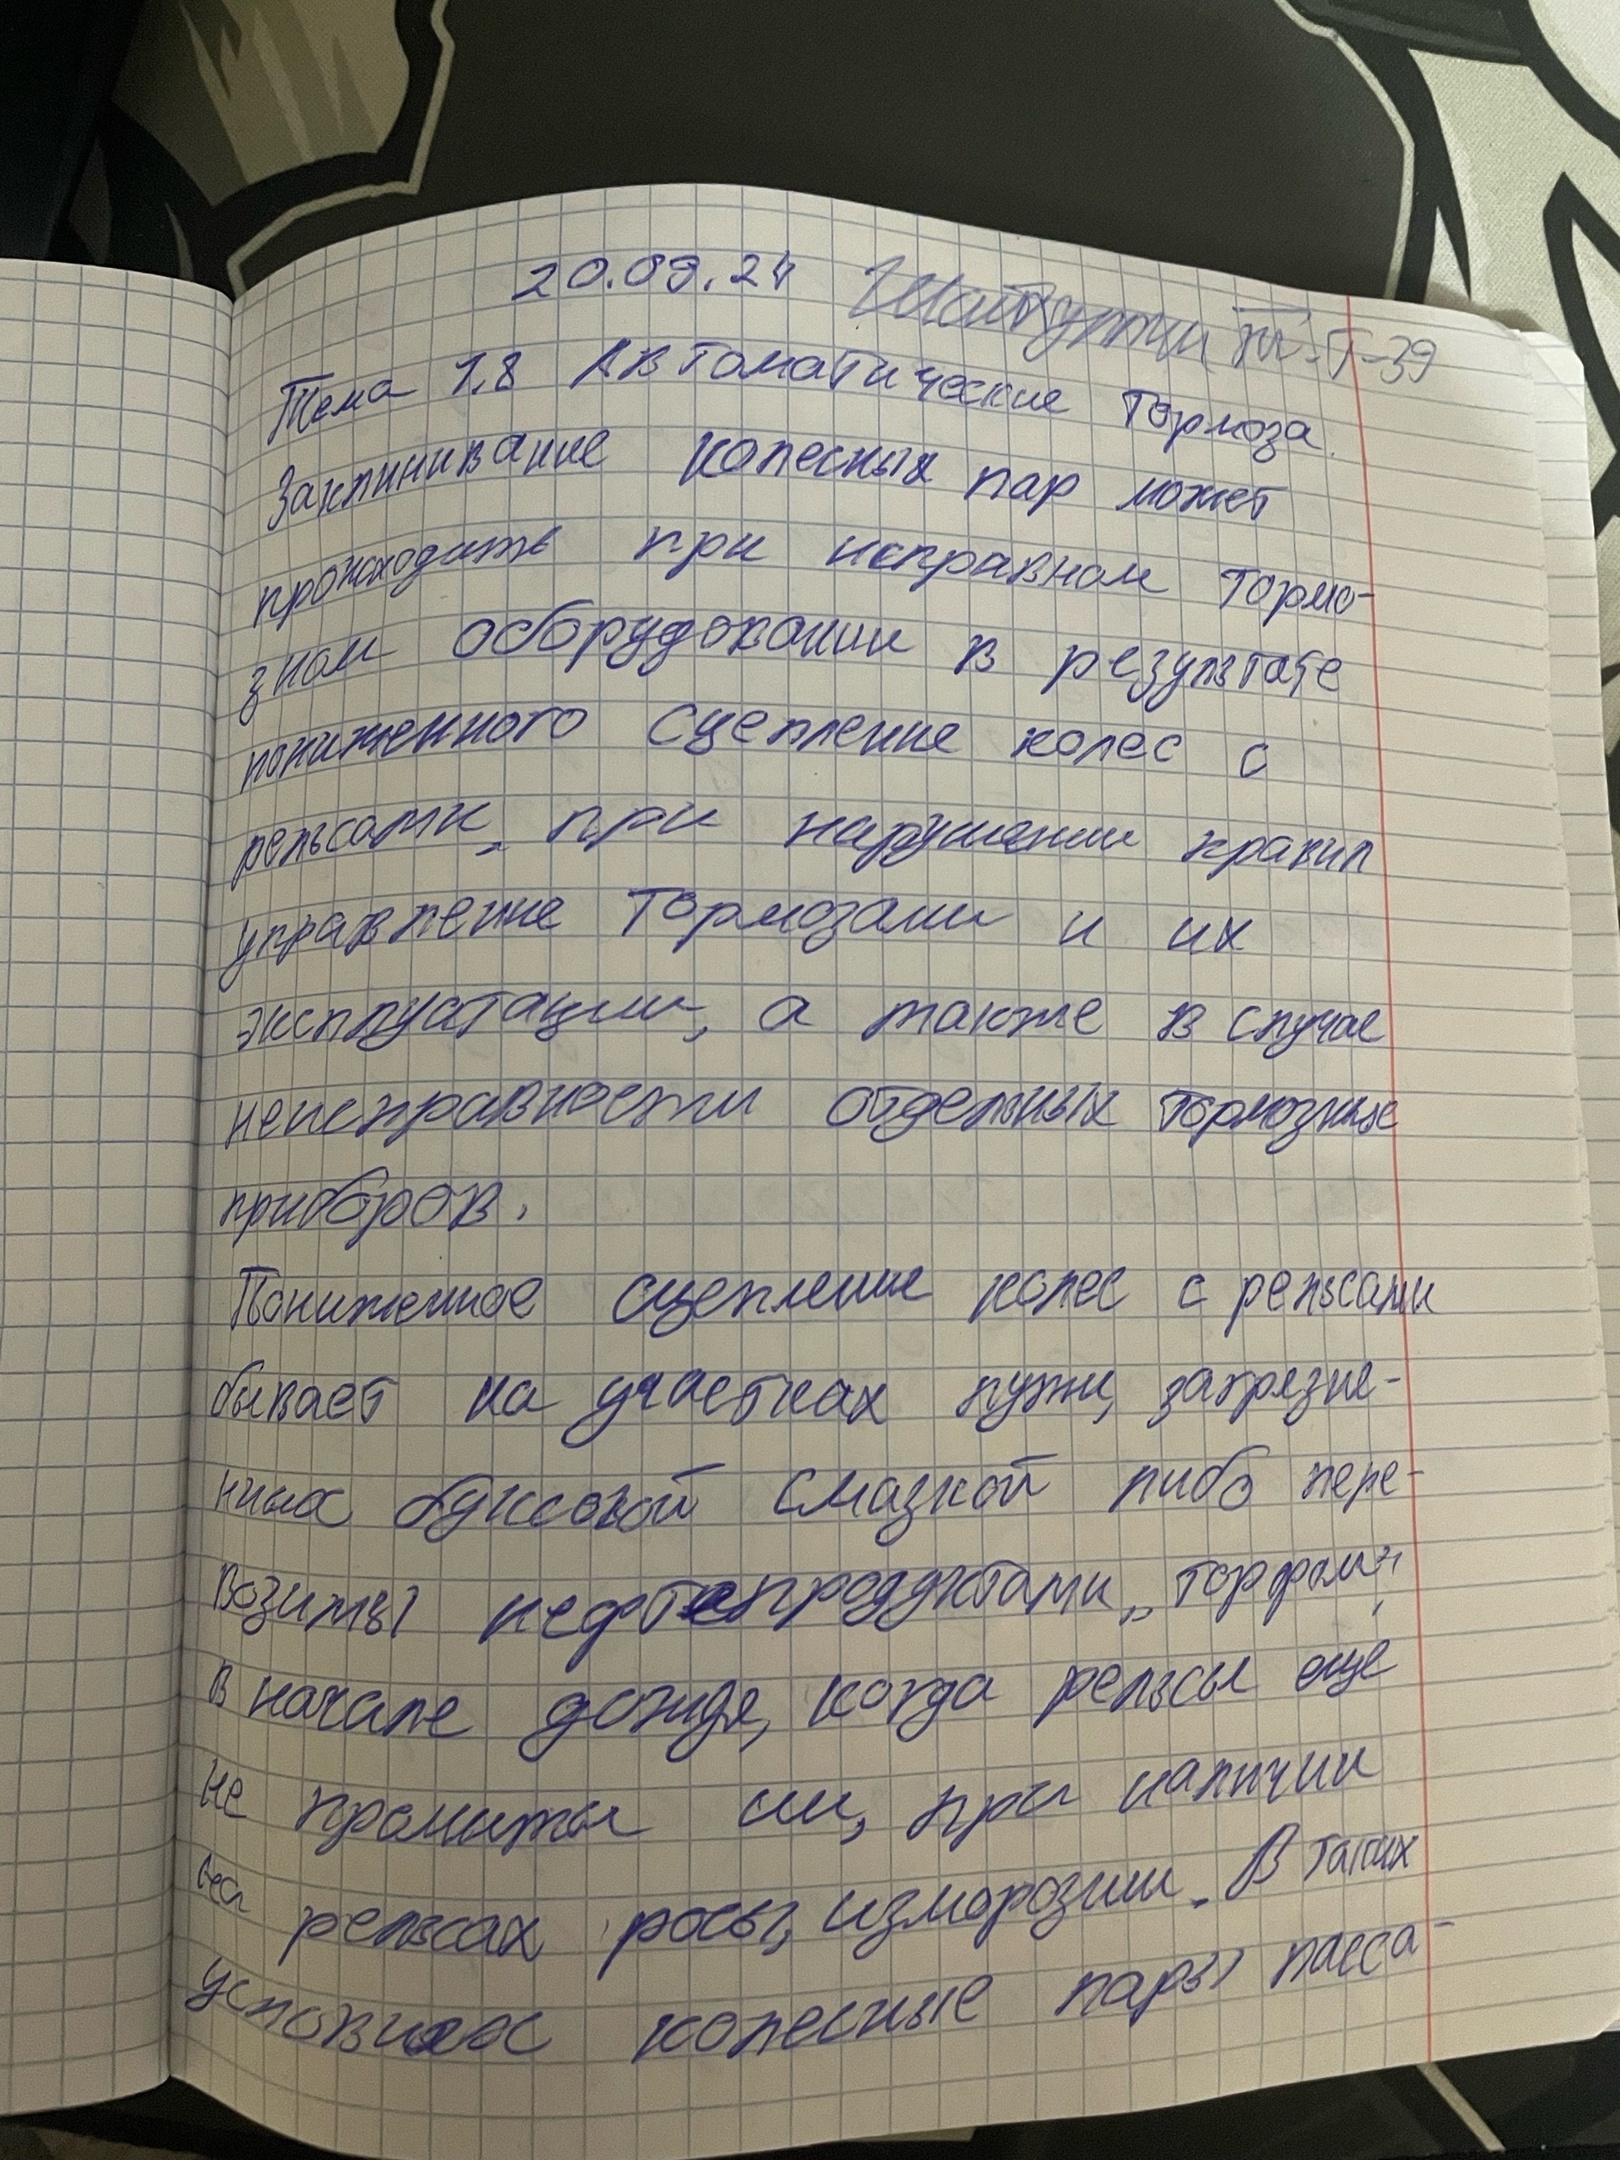 20.09.24
Тема 1.8 Автоматические тормоза.
Заклинивание колесных пар может
происходить при исправном тормо-
зном оборудовании в результате
пониженного сцепление колес с
рельсами, при нарушении правил
управление тормозами и их
эксплуатации, а также в случае
неисправности отдельных тормозные
приборов.
Пониженное сцепление колес с рельсами
бывает на участках пути, загрязне-
нных буксовой смазкой либо пере-
возимы нефтепродуктами, торфом,
в начале дождя, когда рельсы еще
не промыты им, при наличии
рельсах росы, изморози. В таких
условиях колесные пары пасса-